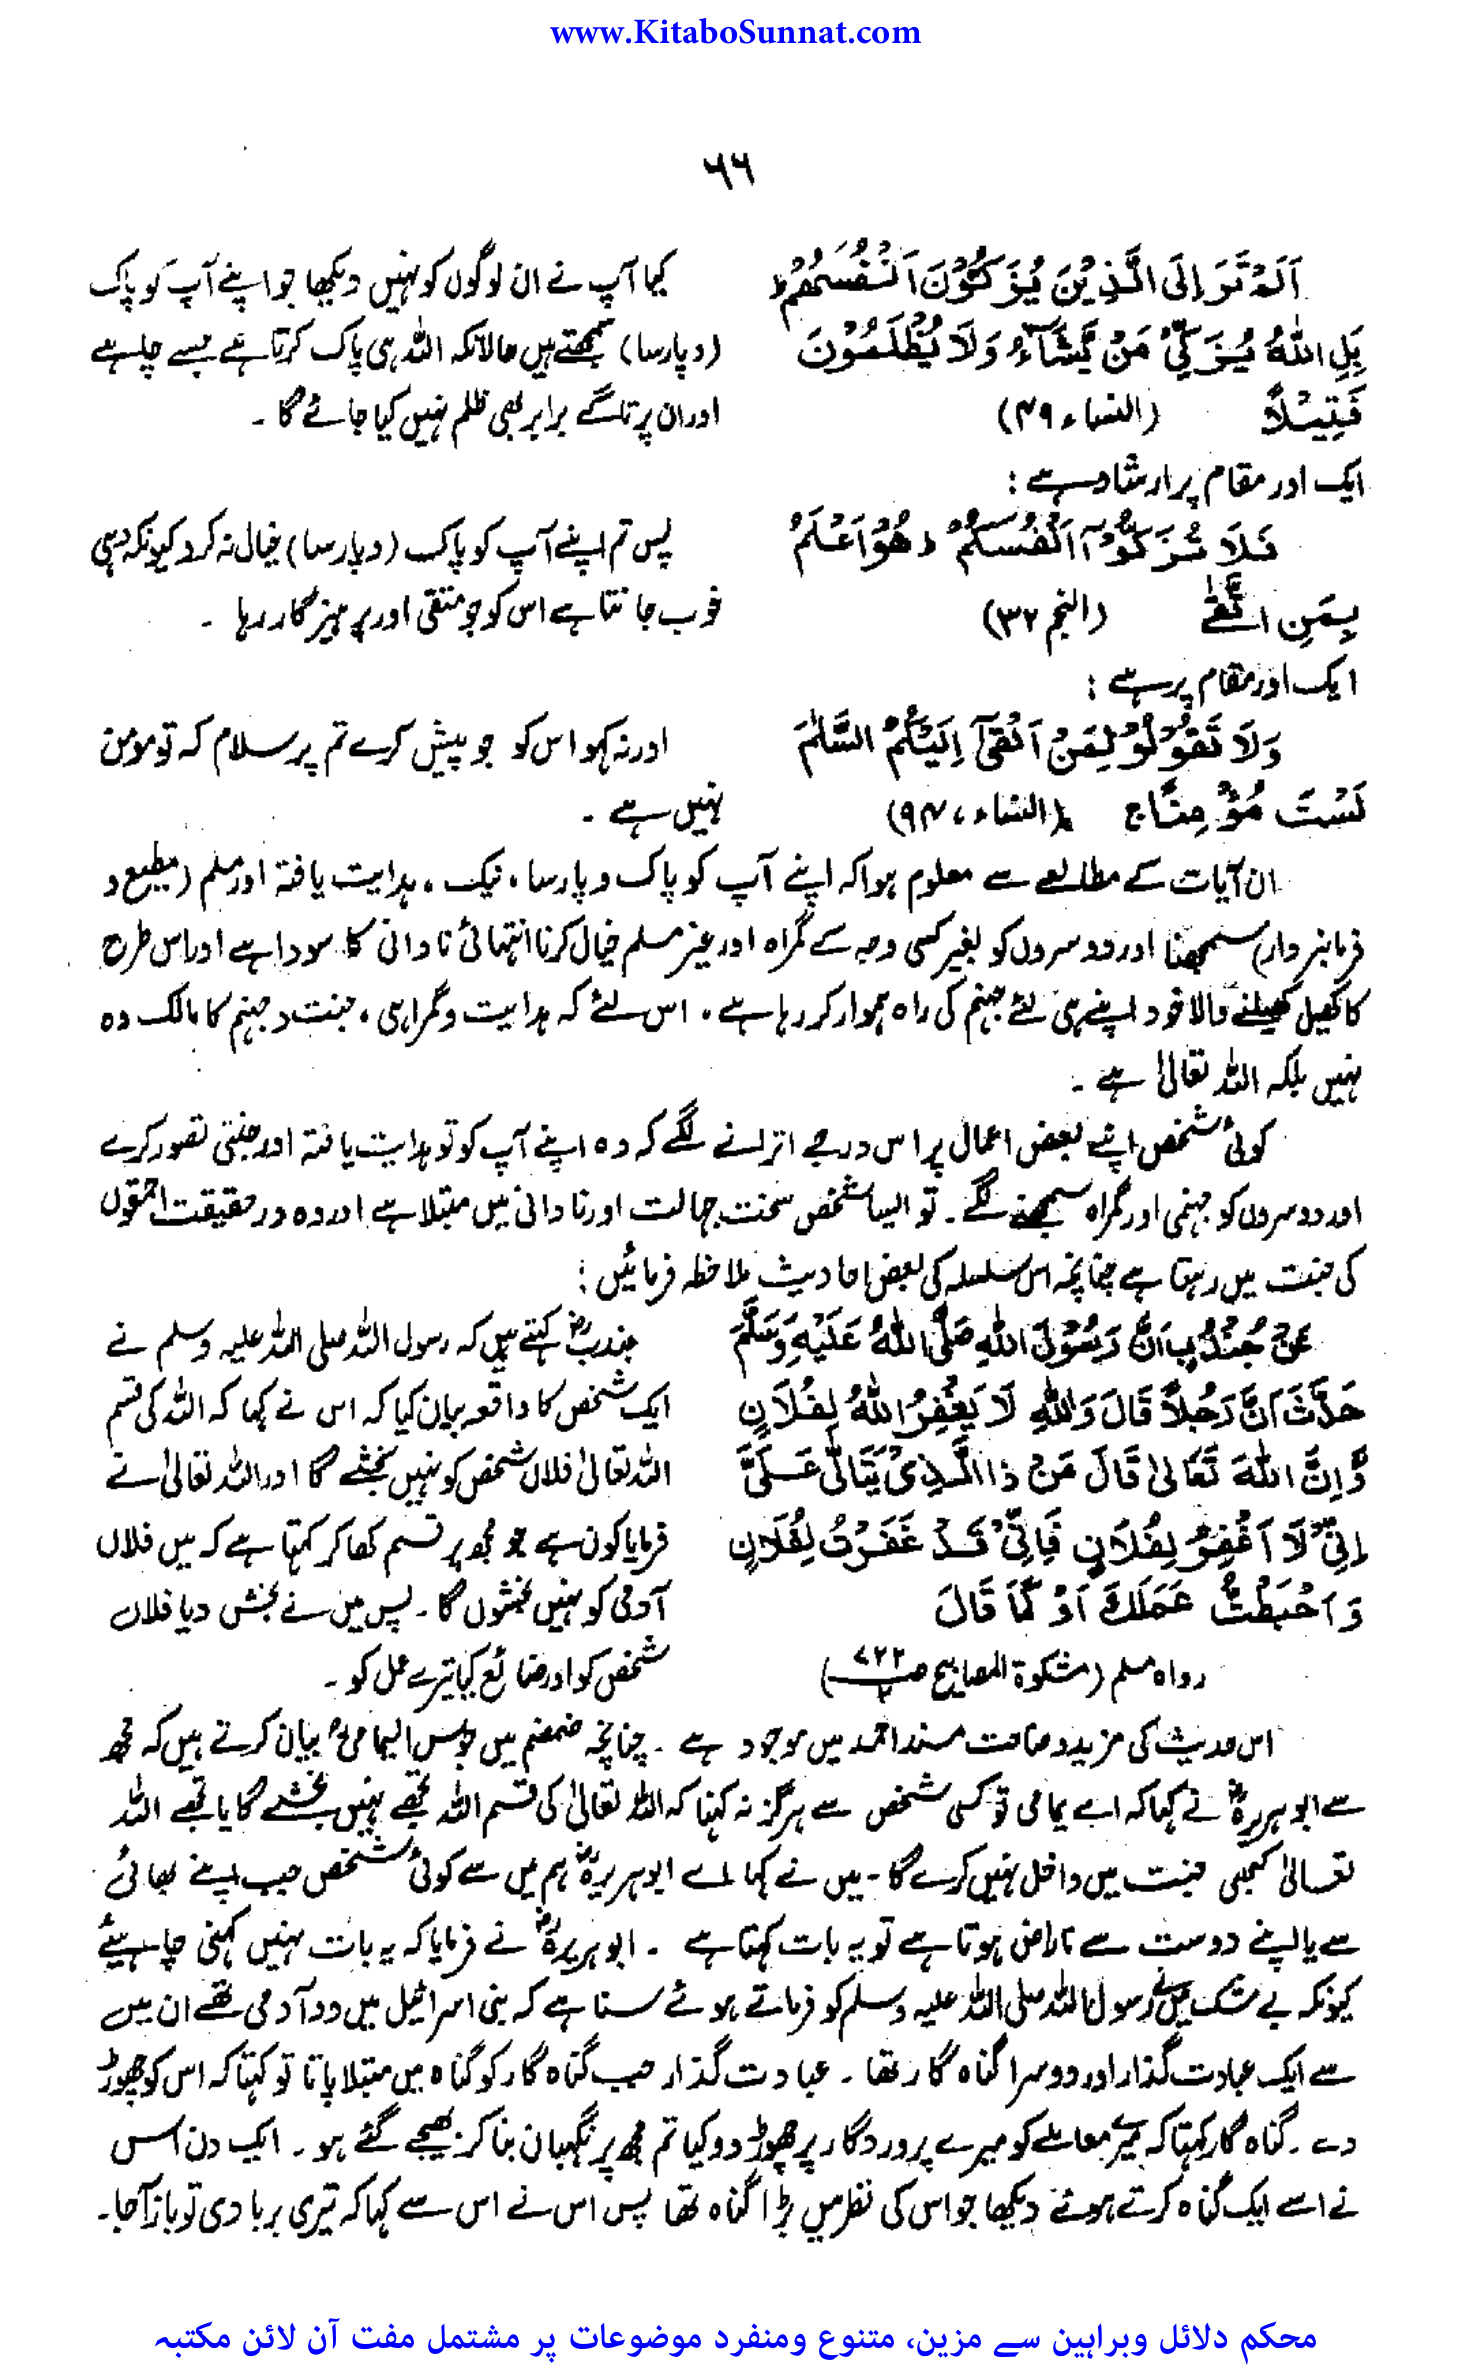 www.KitaboSunnat.com
٦٦
اَلَمْ تَرَ اِلَى الَّذِيْنَ يُزَكُّوْنَ اَنْفُسَهُمْ ط
بَلِ اللهُ يُزَكِّيْ مَنْ يَّشَآءُ وَلَا يُظْلَمُوْنَ
فَتِيْلًا (النساء ۴۹)
کیا آپ نے ان لوگوں کو نہیں دیکھا جو اپنے آپ کو پاک
(و پارسا) سمجھتے ہیں حالانکہ اللہ ہی پاک کرتا ہے جسے چاہے
اور ان پر تاگے برابر بھی ظلم نہیں کیا جائے گا ۔
ایک اور مقام پر ارشاد ہے :
فَلَا تُزَكُّوْآ اَنْفُسَكُمْ ط هُوَ اَعْلَمُ
بِمَنِ اتَّقٰى (النجم ۳۲)
پس تم اپنے آپ کو پاک (و پارسا) خیال نہ کرو کیونکہ وہی
خوب جانتا ہے اس کو جو متقی اور پرہیزگار رہا ۔
ایک اور مقام پر ہے :
وَلَا تَقُوْلُوْا لِمَنْ اَلْقٰىٓ اِلَيْكُمُ السَّلٰمَ
لَسْتَ مُؤْمِنًا ج (النساء، ۹۴)
اور نہ کہو اس کو جو پیش کرے تم پر سلام کہ تو مومن
نہیں ہے ۔
ان آیات کے مطالعے سے معلوم ہوا کہ اپنے آپ کو پاک و پارسا ، نیک ، ہدایت یافتہ اور مسلم (مطیع و
فرمانبردار) سمجھنا اور دوسروں کو بغیر کسی وجہ کے گمراہ اور غیر مسلم خیال کرنا انتہائی نادانی کا سودا ہے اور اس طرح
کا کھیل کھیلنے والا خود اپنے ہی لئے جہنم کی راہ ہموار کر رہا ہے ، اس لئے کہ ہدایت و گمراہی ، جنت و جہنم کا مالک وہ
نہیں بلکہ اللہ تعالیٰ ہے ۔
کوئی شخص اپنے بعض اعمال پر اس درجے اترانے لگے کہ وہ اپنے آپ کو تو ہدایت یافتہ اور جنتی تصور کرے
اور دوسروں کو جہنمی اور گمراہ سمجھنے لگے ۔ تو ایسا شخص سخت جہالت اور نادانی میں مبتلا ہے اور وہ در حقیقت احمقوں
کی جنت میں رہتا ہے چنانچہ اس سلسلہ کی بعض احادیث ملاحظہ فرمائیں :
عَنْ جُنْدُبٍ اَنَّ رَسُوْلَ اللهِ صَلَّى اللهُ عَلَيْهِ وَسَلَّمَ
حَدَّثَ اَنَّ رَجُلًا قَالَ وَاللهِ لَا يَغْفِرُ اللهُ لِفُلَانٍ
وَّاِنَّ اللهَ تَعَالٰى قَالَ مَنْ ذَا الَّذِيْ يَتَاَلّٰى عَلَيَّ
اِنِّيْ لَا اَغْفِرُ لِفُلَانٍ فَاِنِّيْ قَدْ غَفَرْتُ لِفُلَانٍ
وَ اَحْبَطْتُ عَمَلَكَ اَوْ كَمَا قَالَ
رواہ مسلم (مشکوۃ المصابیح ص ۷۲۲/۲)
جندبؓ کہتے ہیں کہ رسول اللہ صلی اللہ علیہ وسلم نے
ایک شخص کا واقعہ بیان کیا کہ اس نے کہا کہ اللہ کی قسم
اللہ تعالیٰ فلاں شخص کو نہیں بخشے گا اور اللہ تعالیٰ نے
فرمایا کون ہے جو مجھ پر قسم کھا کر کہتا ہے کہ میں فلاں
آدمی کو نہیں بخشوں گا ۔ پس میں نے بخش دیا فلاں
شخص کو اور ضائع کیا تیرے عمل کو ۔
اس حدیث کی مزید وضاحت مسند احمد میں موجود ہے ۔ چنانچہ ضمضم بن جوس الیمامیؒ بیان کرتے ہیں کہ مجھ
سے ابو ہریرہؓ نے کہا کہ اے یمامی تو کسی شخص سے ہرگز نہ کہنا کہ اللہ تعالیٰ کی قسم اللہ تجھے نہیں بخشے گا یا تجھے اللہ
تعالیٰ کبھی جنت میں داخل نہیں کرے گا ۔ میں نے کہا اے ابو ہریرہؓ ہم میں سے کوئی شخص جب اپنے بھائی
سے یا اپنے دوست سے ناراض ہوتا ہے تو یہ بات کہتا ہے ۔ ابو ہریرہؓ نے فرمایا کہ یہ بات نہیں کہنی چاہیئے
کیونکہ بے شک میں نے رسول اللہ صلی اللہ علیہ وسلم کو فرماتے ہوئے سنا ہے کہ بنی اسرائیل میں دو آدمی تھے ان میں
سے ایک عبادت گذار اور دوسرا گناہ گار تھا ۔ عبادت گذار جب گناہ گار کو گناہ میں مبتلا پاتا تو کہتا کہ اس کو چھوڑ
دے ۔ گناہ گار کہتا کہ میرے معاملے کو میرے پروردگار پر چھوڑ دو کیا تم مجھ پر نگہبان بنا کر بھیجے گئے ہو ۔ ایک دن اس
نے اسے ایک گناہ کرتے ہوئے دیکھا جو اس کی نظر میں بڑا گناہ تھا پس اس نے اس سے کہا کہ تیری بربادی تو باز آ جا ۔
محکم دلائل وبراہین سے مزین، متنوع ومنفرد موضوعات پر مشتمل مفت آن لائن مکتبہ